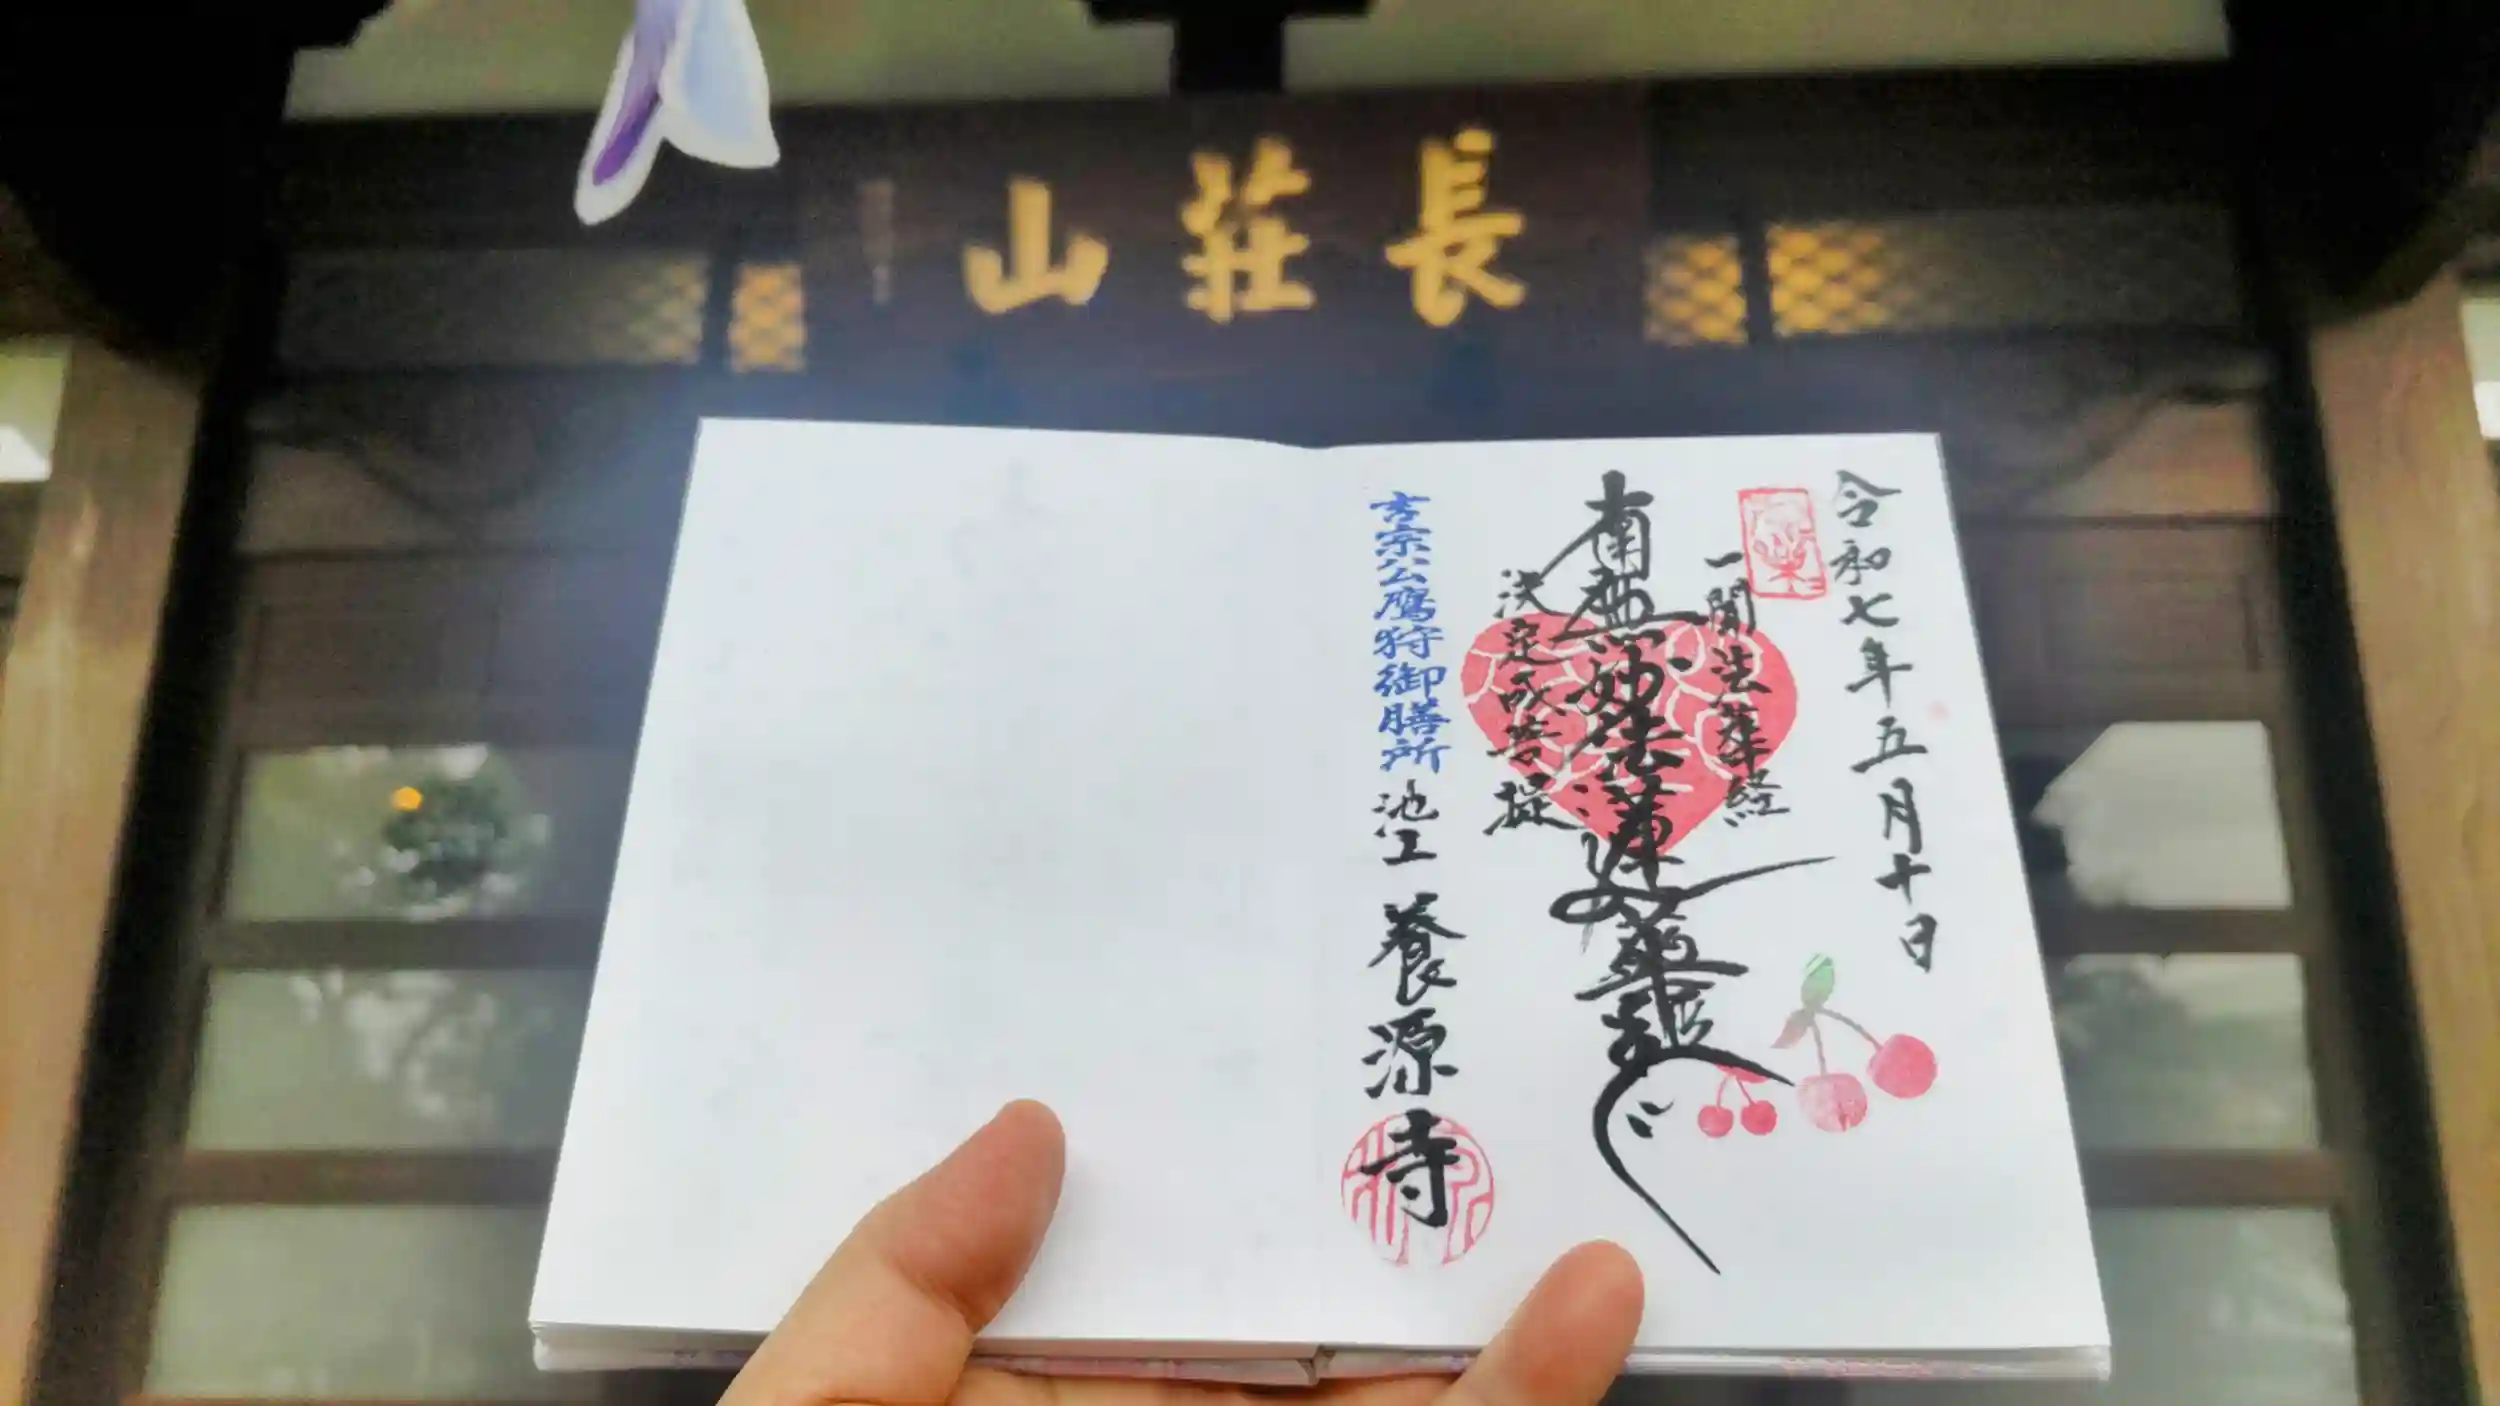 長荘山
令和七年五月十日
一聞法華経
南無妙法蓮華経
決定成菩提
吉宗公鷹狩御膳所 池上 養源寺